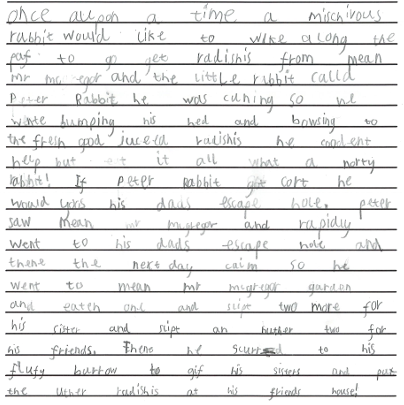 once auoon a time a mischirous
rabbit would like to wlke along the
paf to go get radishis from mean
mr mc egor and the little rabbit calld
Peter Rabbit he was cuning so he
wente bumping his hed and bowsing to
the fresh good juceid radishis he couldent
help but eat it all what a norty
rabiht! If peter Rabbit got cort he
would yous his dads escape hole. peter
saw mean mr mcgregor and rapidly
went to his dads escape hole and
thene the next day caim so he
went to mean mr mcgregor garden
and eaten one and slipt two more for
his sister and slipt an huther two for
his friends. Theno he scurred to his
flufy burrow to gif his sisters and put
the uther radishis at his friends house!